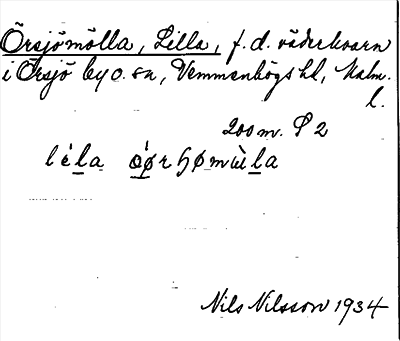 Örsjömölla, Lilla, f.d. väderkvarn
i Örsjö by o. sn, Vemmenhögs hd, Malm.
l.
200 m. S 2
Nils Nilsson 1934